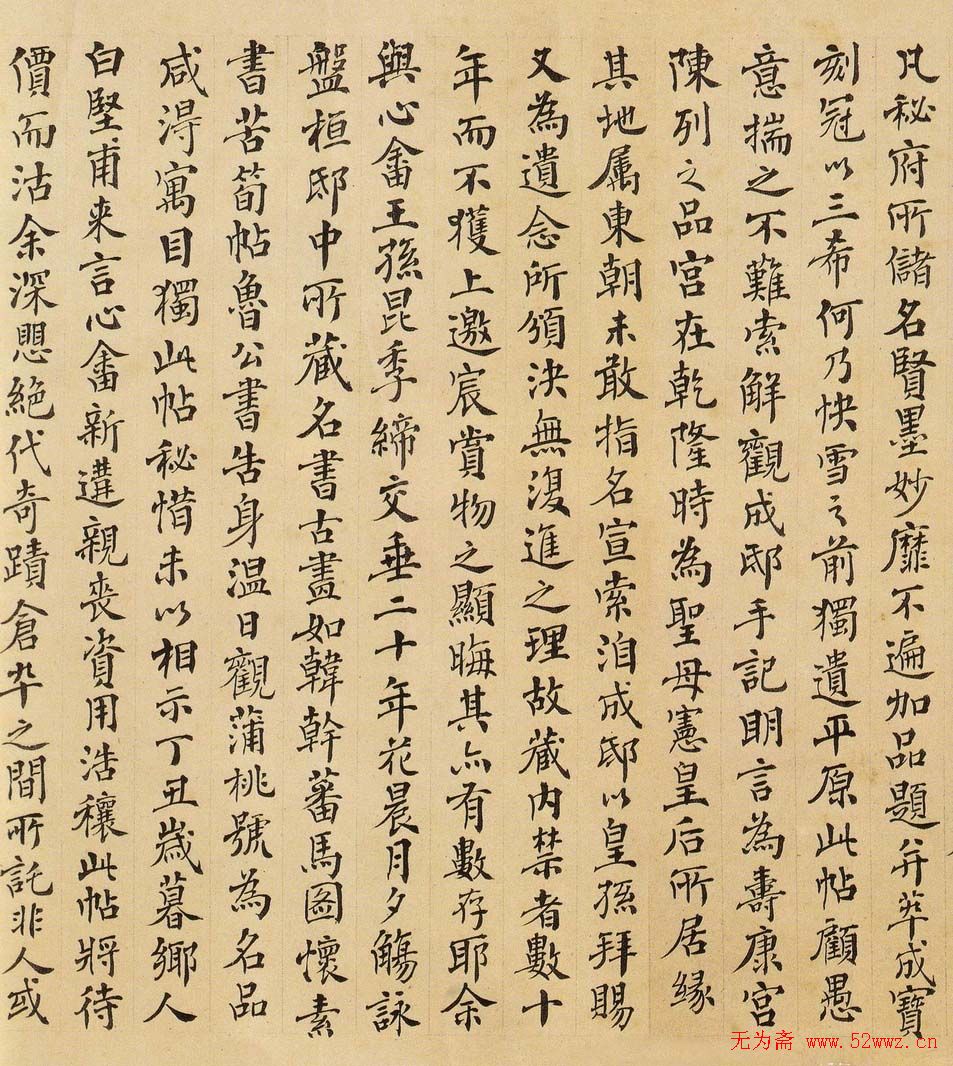 凡秘府所儲名賢墨妙靡不遍加品題并萃成寶
刻冠以三希何乃快雪之前獨遺平原此帖顧愚
意揣之不難索解觀成邸手記明言為壽康宮
陳列之品宮在乾隆時為聖母憲皇后所居緣
其地属東朝未敢指名宣索洎成邸以皇孫拜賜
又為遺念所頒決無復進之理故藏内禁者數十
年而不獲上邀宸賞物之顯晦其亦有數存耶余
與心畬王孫昆季締交垂二十年花晨月夕觴詠
盤桓邸中所藏名書古畫如韓幹蕃馬圖懷素
書苦筍帖魯公書告身溫日觀蒲桃號為名品
咸得寓目獨此帖秘惜未以相示丁丑歲暮鄉人
白堅甫来言心畬新遘親喪資用浩穰此帖將待
價而沽余深思絕代奇蹟倉卒之間所託非人或
无为斋 www.52wwz.cn